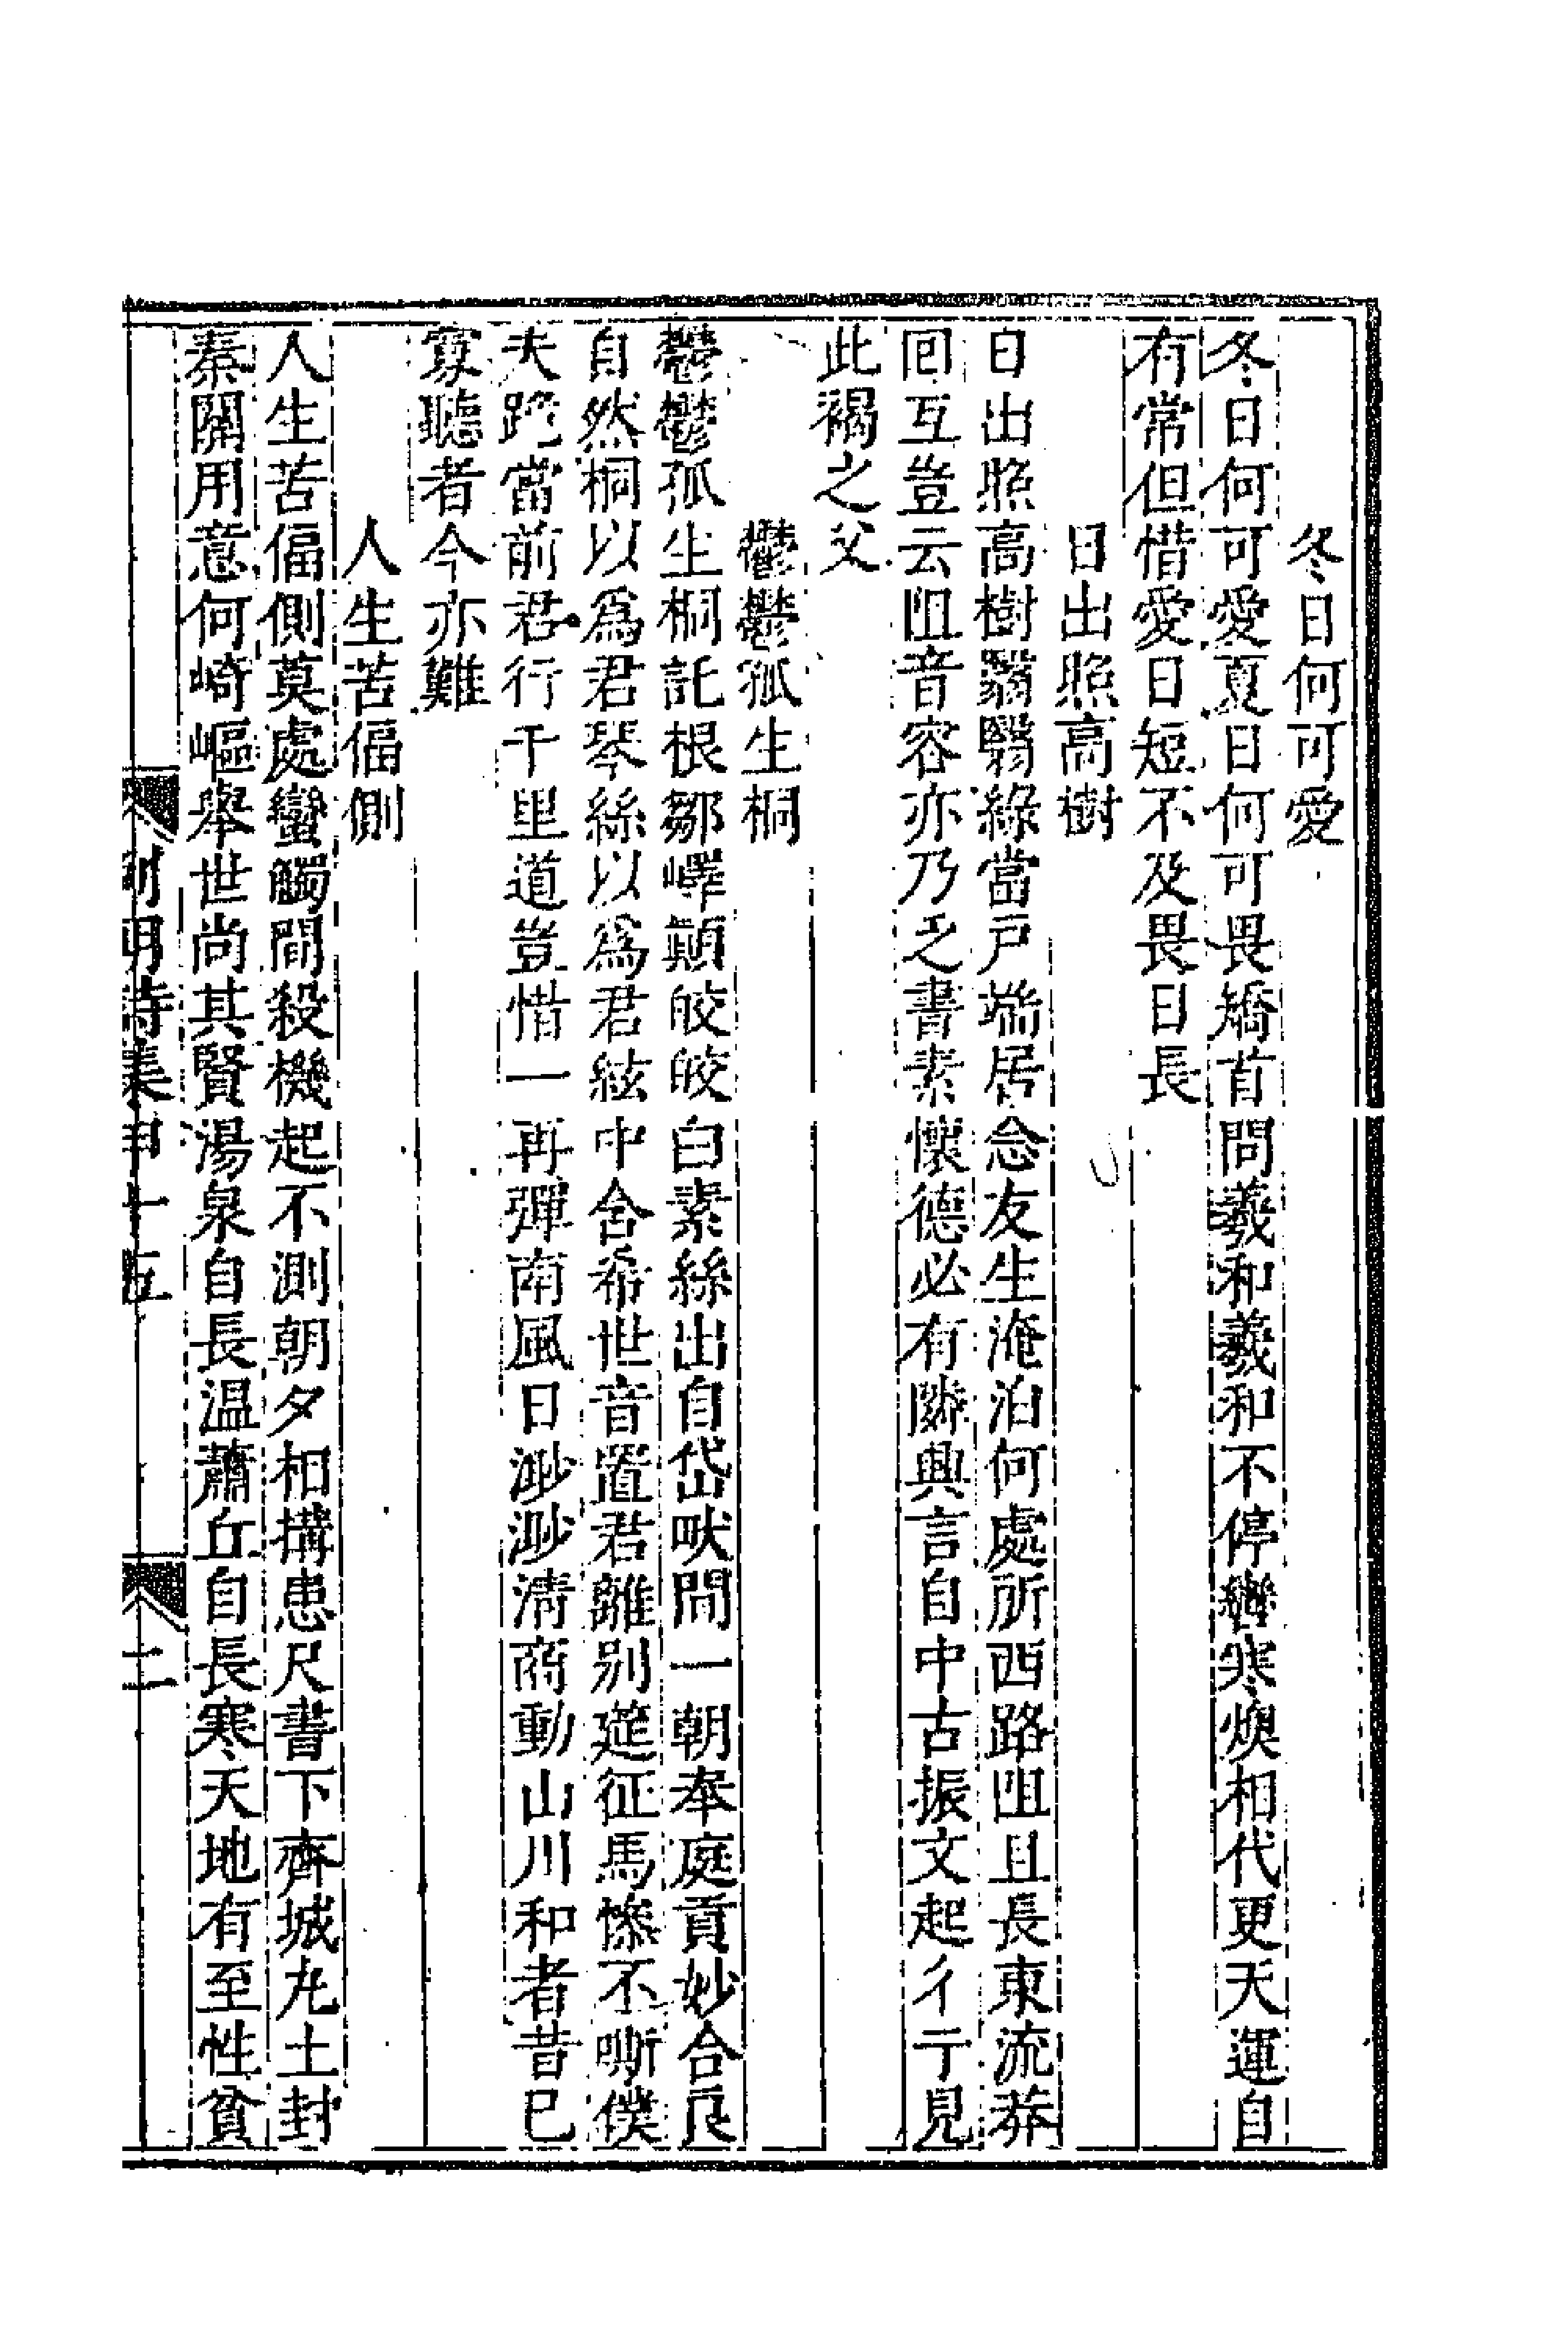 冬日何可愛
冬日何可愛夏日何可畏矯首問羲和羲和不停轡寒燠相代更天運自
有常但惜愛日短不及畏日長
日出照高樹
日出照高樹翳翳綠當戸端居念友生淹泊何處所西路阻且長東流莽
回互豈云阻音容亦乃乏書素懷德必有隣興言自中古振文起彳亍見
此褐之父
鬱鬱孤生桐
鬱鬱孤生桐託根鄒嶧顛皎皎白素絲出自岱畎間一朝奉庭貢妙合良
自然桐以爲君琴絲以爲君絃中含希世音置君離别筵征馬慘不嘶僕
夫跪當前君行千里道豈惜一再彈南風日渺渺清商動山川和者昔巳
寡聽者今亦難
人生苦偪側
人生苦偪側莫處蠻觸間殺機起不測朝夕相搆患尺書下齊城丸土封
秦關用意何崎嶇舉世尚其賢湯泉自長温蕭丘自長寒天地有至性貧
列朝詩集甲十五
二